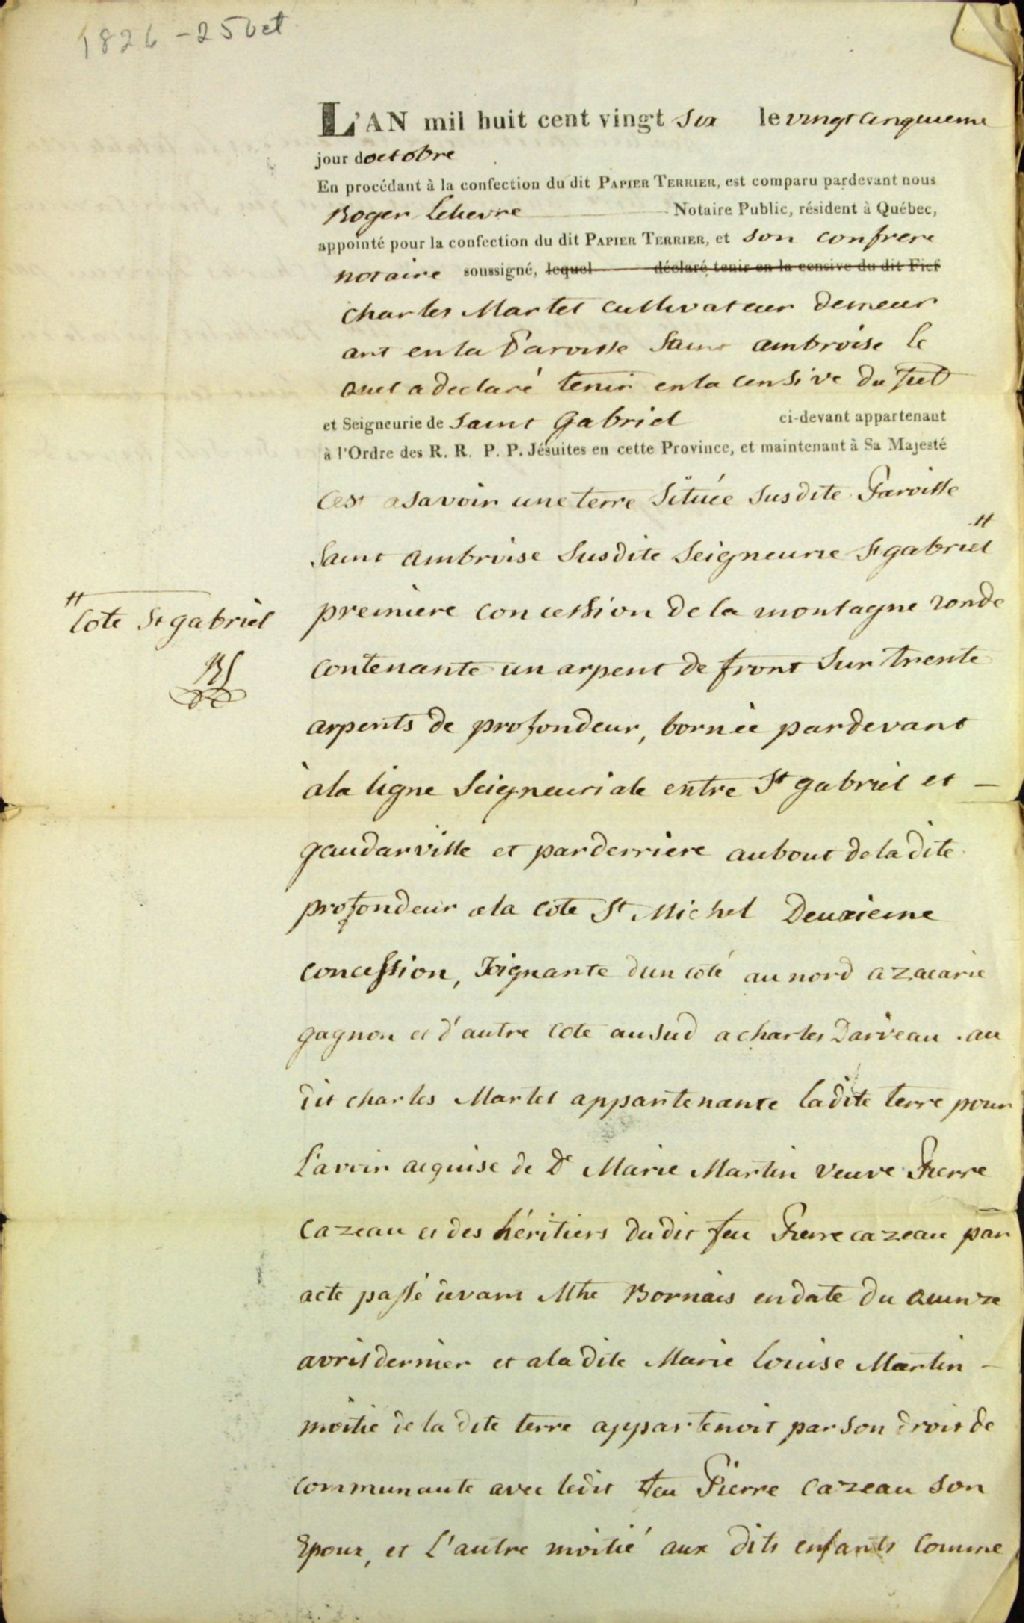 1826 - 25 Oct
L'AN mil huit cent vingt Six le vingt cinquieme
jour d'octobre
En procédant à la confection du dit PAPIER TERRIER, est comparu pardevant nous
Roger Lelievre Notaire Public, résident à Québec,
appointé pour la confection du dit PAPIER TERRIER, et son confrere
notaire soussigné, lequel déclaré tenir en la censive du dit Fief
charles Martel cultivateur demeur
ant en la Paroisse Saint ambroise le
quel a declaré tenir en la censive du fief
et Seigneurie de Saint Gabriel ci-devant appartenant
à l'Ordre des R. R. P. P. Jésuites en cette Province, et maintenant à Sa Majesté
Cest asavoir une terre Située Susdite Paroisse
Saint ambroise Susdite Seigneurie St gabriel #
# Cote St gabriel
RL
premiere concession de la montagne ronde
contenante un arpent de front Sur trente
arpents de profondeur, bornée pardevant
à la ligne Seigneuriale entre St gabriel et
gaudarville et parderriere aubout de la dite
profondeur a la cote St Michel Deuxieme
concession, Joignante dun coté au nord a zacarie
gagnon et d'autre cote au sud a charles Darveau . au
dit charles Martel appartenante la dite terre pour
L'avoir acquise de De Marie Martin veuve Pierre
Cazeau et des héritiers du dit feu Pierre cazeau par
acte passé devant Mtre Bornais en date du quinze
avril dernier et a la dite Marie Louise Martin
moitie de la dite terre appartenoit par son droit de
communaute avec ledit feu Pierre Cazeau son
Epoux, et L'autre moitié aux dits enfants comme